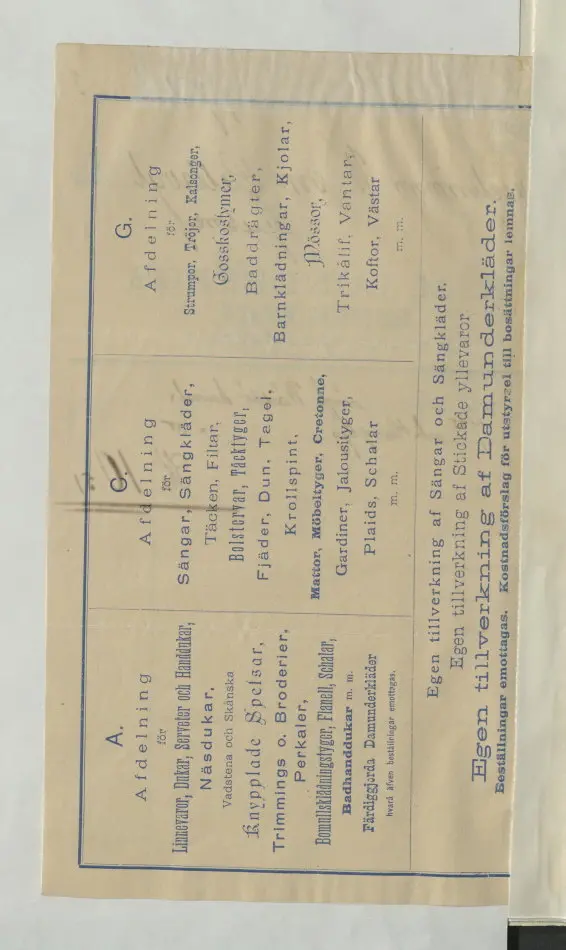 A.
Afdelning
för
Linnevaror, Dukar, Serveter och Handdukar,
Näsdukar,
Vadstena och Skånska
Knypplade Spetsar,
Trimmings o. Broderier,
Perkaler,
Bomullsklädningstyger, Flanell, Schalar,
Badhanddukar m. m.
Färdiggjorda Damunderkläder
hvarå äfven beställningar emottagas.
C.
Afdelning
för
Sängar, Sängkläder,
Täcken, Filtar,
Bolstervar, Täcktyger,
Fjäder, Dun, Tagel,
Krollspint,
Mattor, Möbeltyger, Cretonne,
Gardiner, Jalousityger,
Plaids, Schalar
m. m.
G.
Afdelning
för
Strumpor, Tröjor, Kalsonger,
Gosskostymer,
Baddrägter,
Barnklädningar, Kjolar,
Mössor,
Trikålif, Vantar,
Koftor, Västar
m. m.
Egen tillverkning af Sängar och Sängkläder.
Egen tillverkning af Stickade yllevaror
Egen tillverkning af Damunderkläder.
Beställningar emottagas. Kostnadsförslag för utstyrsel till bosättningar lemnas.